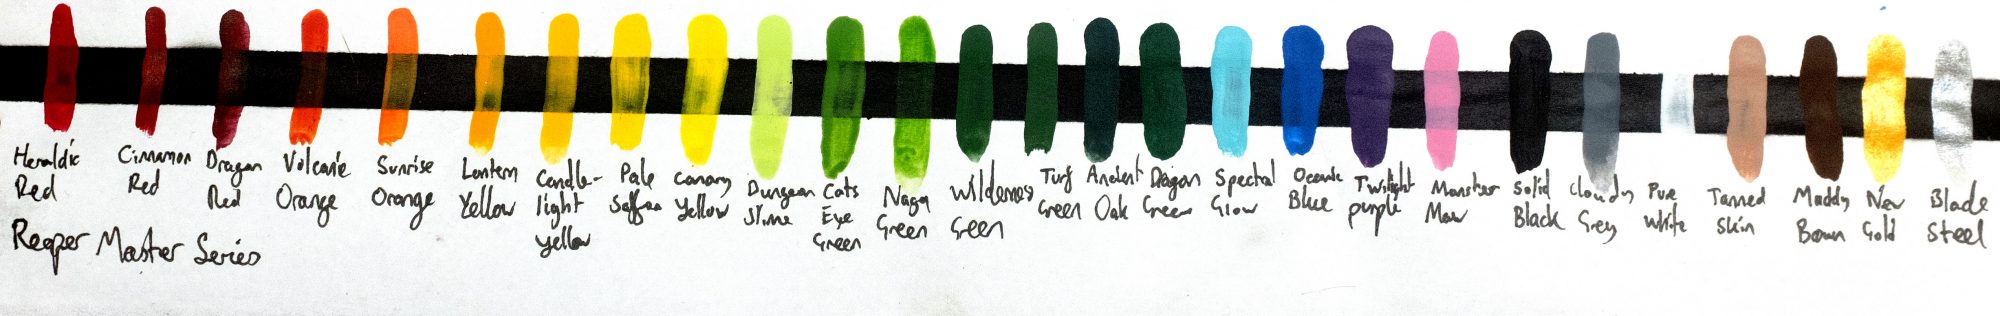 Heraldic
Red
Cinnamon
Red
Dragon
Red
Volcanic
Orange
Sunrise
Orange
Lantern
Yellow
Candle-
light
Yellow
Pale
Saffron
Canary
Yellow
Dungeon
Slime
Cats
Eye
Green
Naga
Green
Wilderness
Green
Turf
Green
Ancient
Oak
Dragon
Green
Spectral
Glow
Oceanic
Blue
Twilight
purple
Monster
Maw
Solid
Black
Cloudy
Grey
Pure
White
Tanned
Skin
Muddy
Brown
New
Gold
Blade
Steel
Reaper Master Series